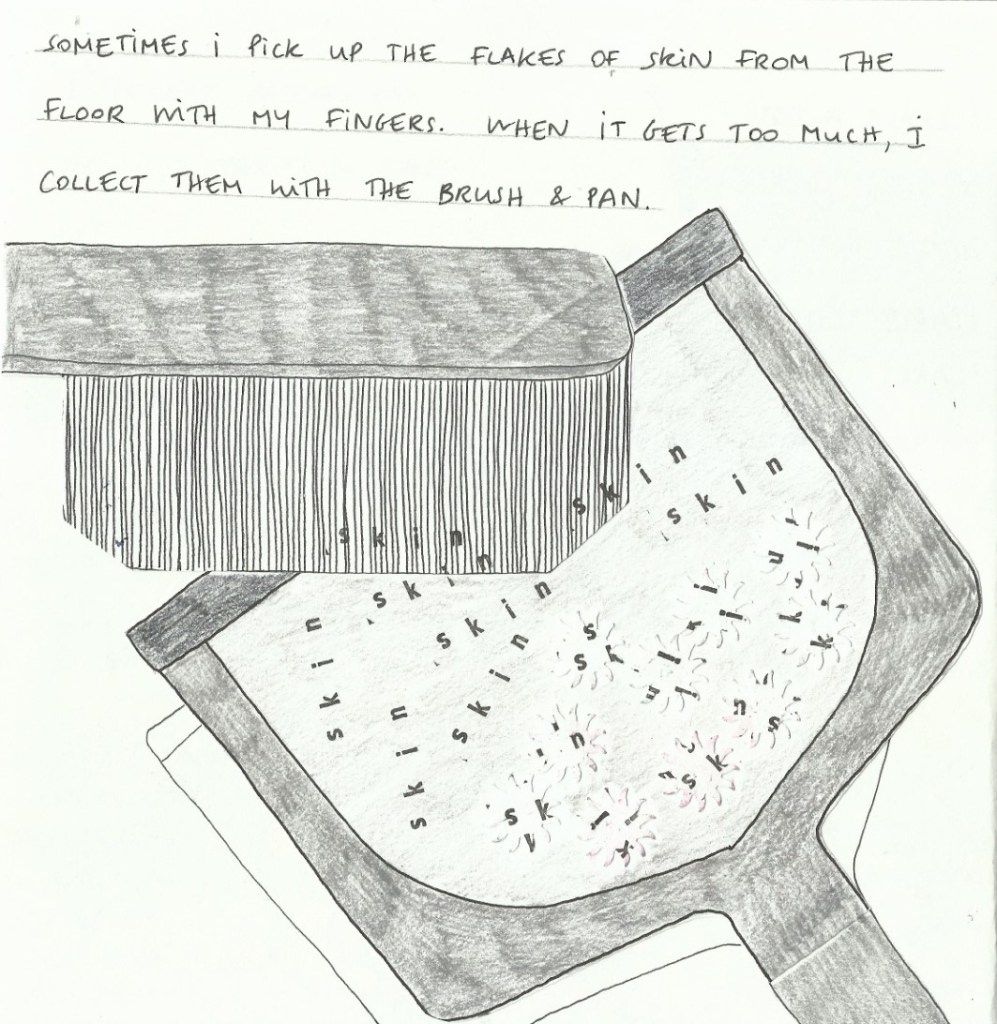 SOMETIMES i PiCK UP THE FLAKES OF SKiN FROM THE
FLOOR WiTH MY FiNGERS. WHEN iT GETS TOO MUCH, I
COLLECT THEM WiTH THE BRUSH & PAN.
skin
skin
skin
skin
skin
skin
skin
skin
skin